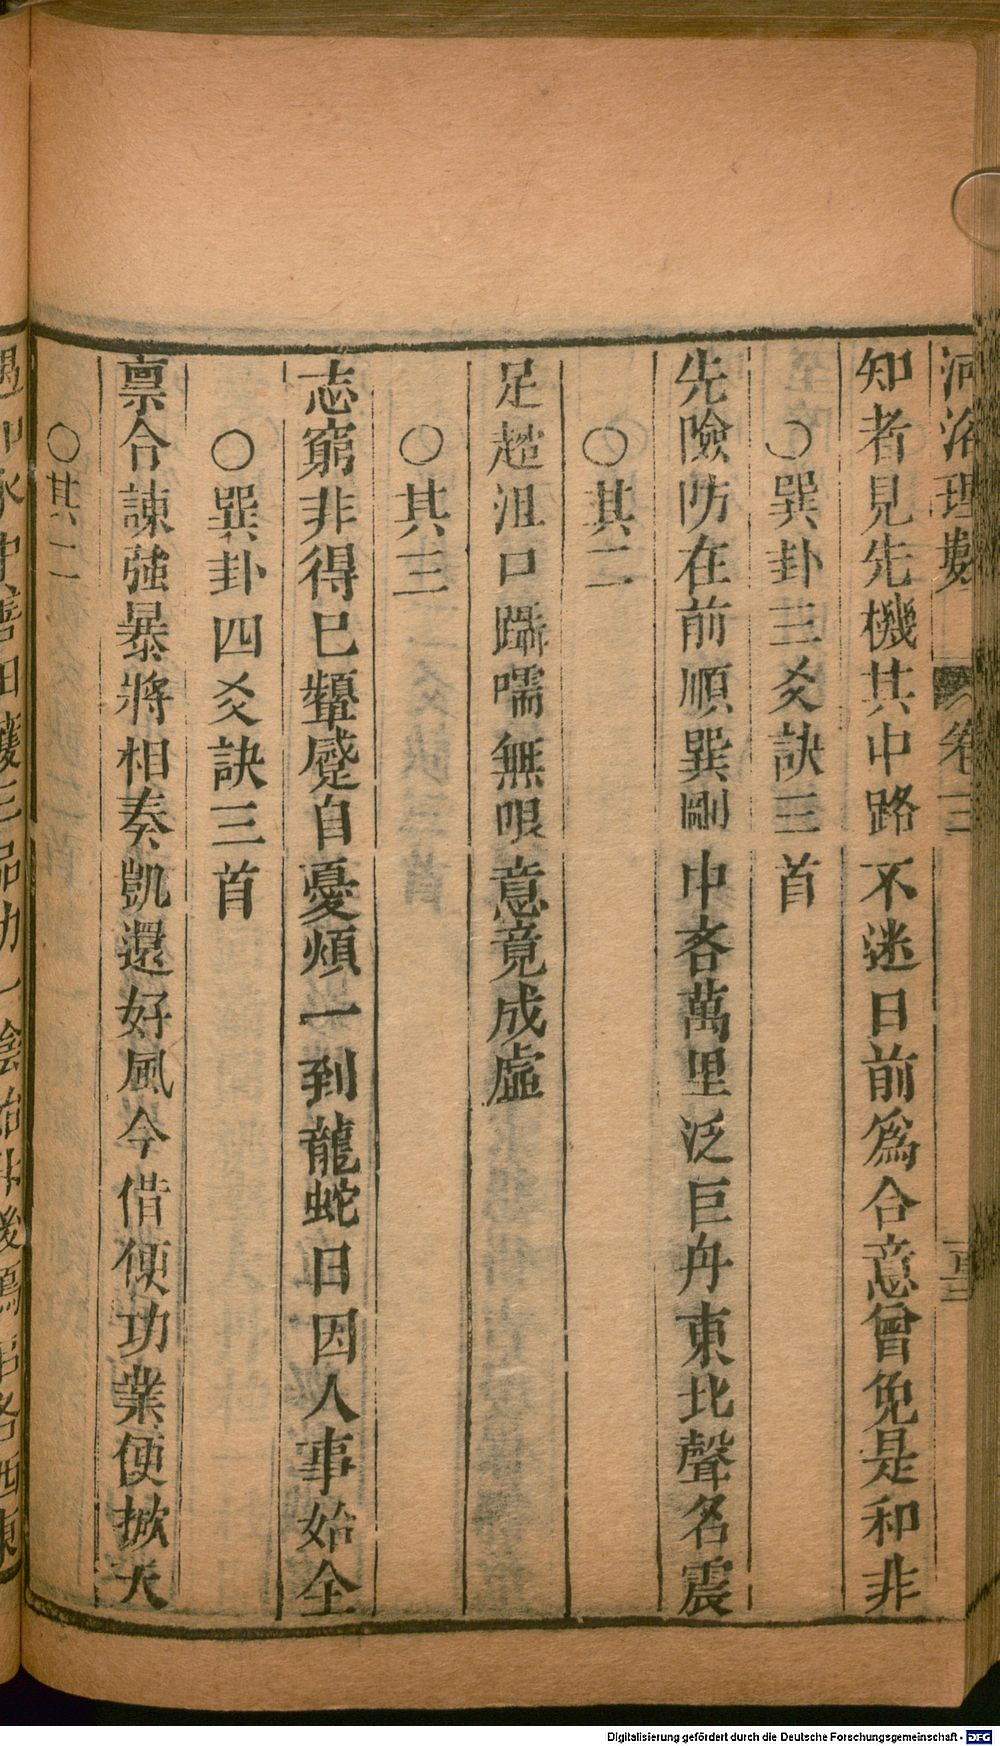 河洛理數 卷三
知者見先機其中路不迷日前爲合意曾免是和非
○巽卦三爻訣三首
先險防在前順巽剛中吝萬里泛巨舟東北聲名震
○其二
足趑沮口躡嚅無哏意竟成虛
○其三
志窮非得已顰蹙自憂煩一到龍蛇日因人事始全
○巽卦四爻訣三首
禀令諫強暴將相奏凱還好風今借便功業便掀天
○其二
Digitalisierung gefördert durch die Deutsche Forschungsgemeinschaft - DFG